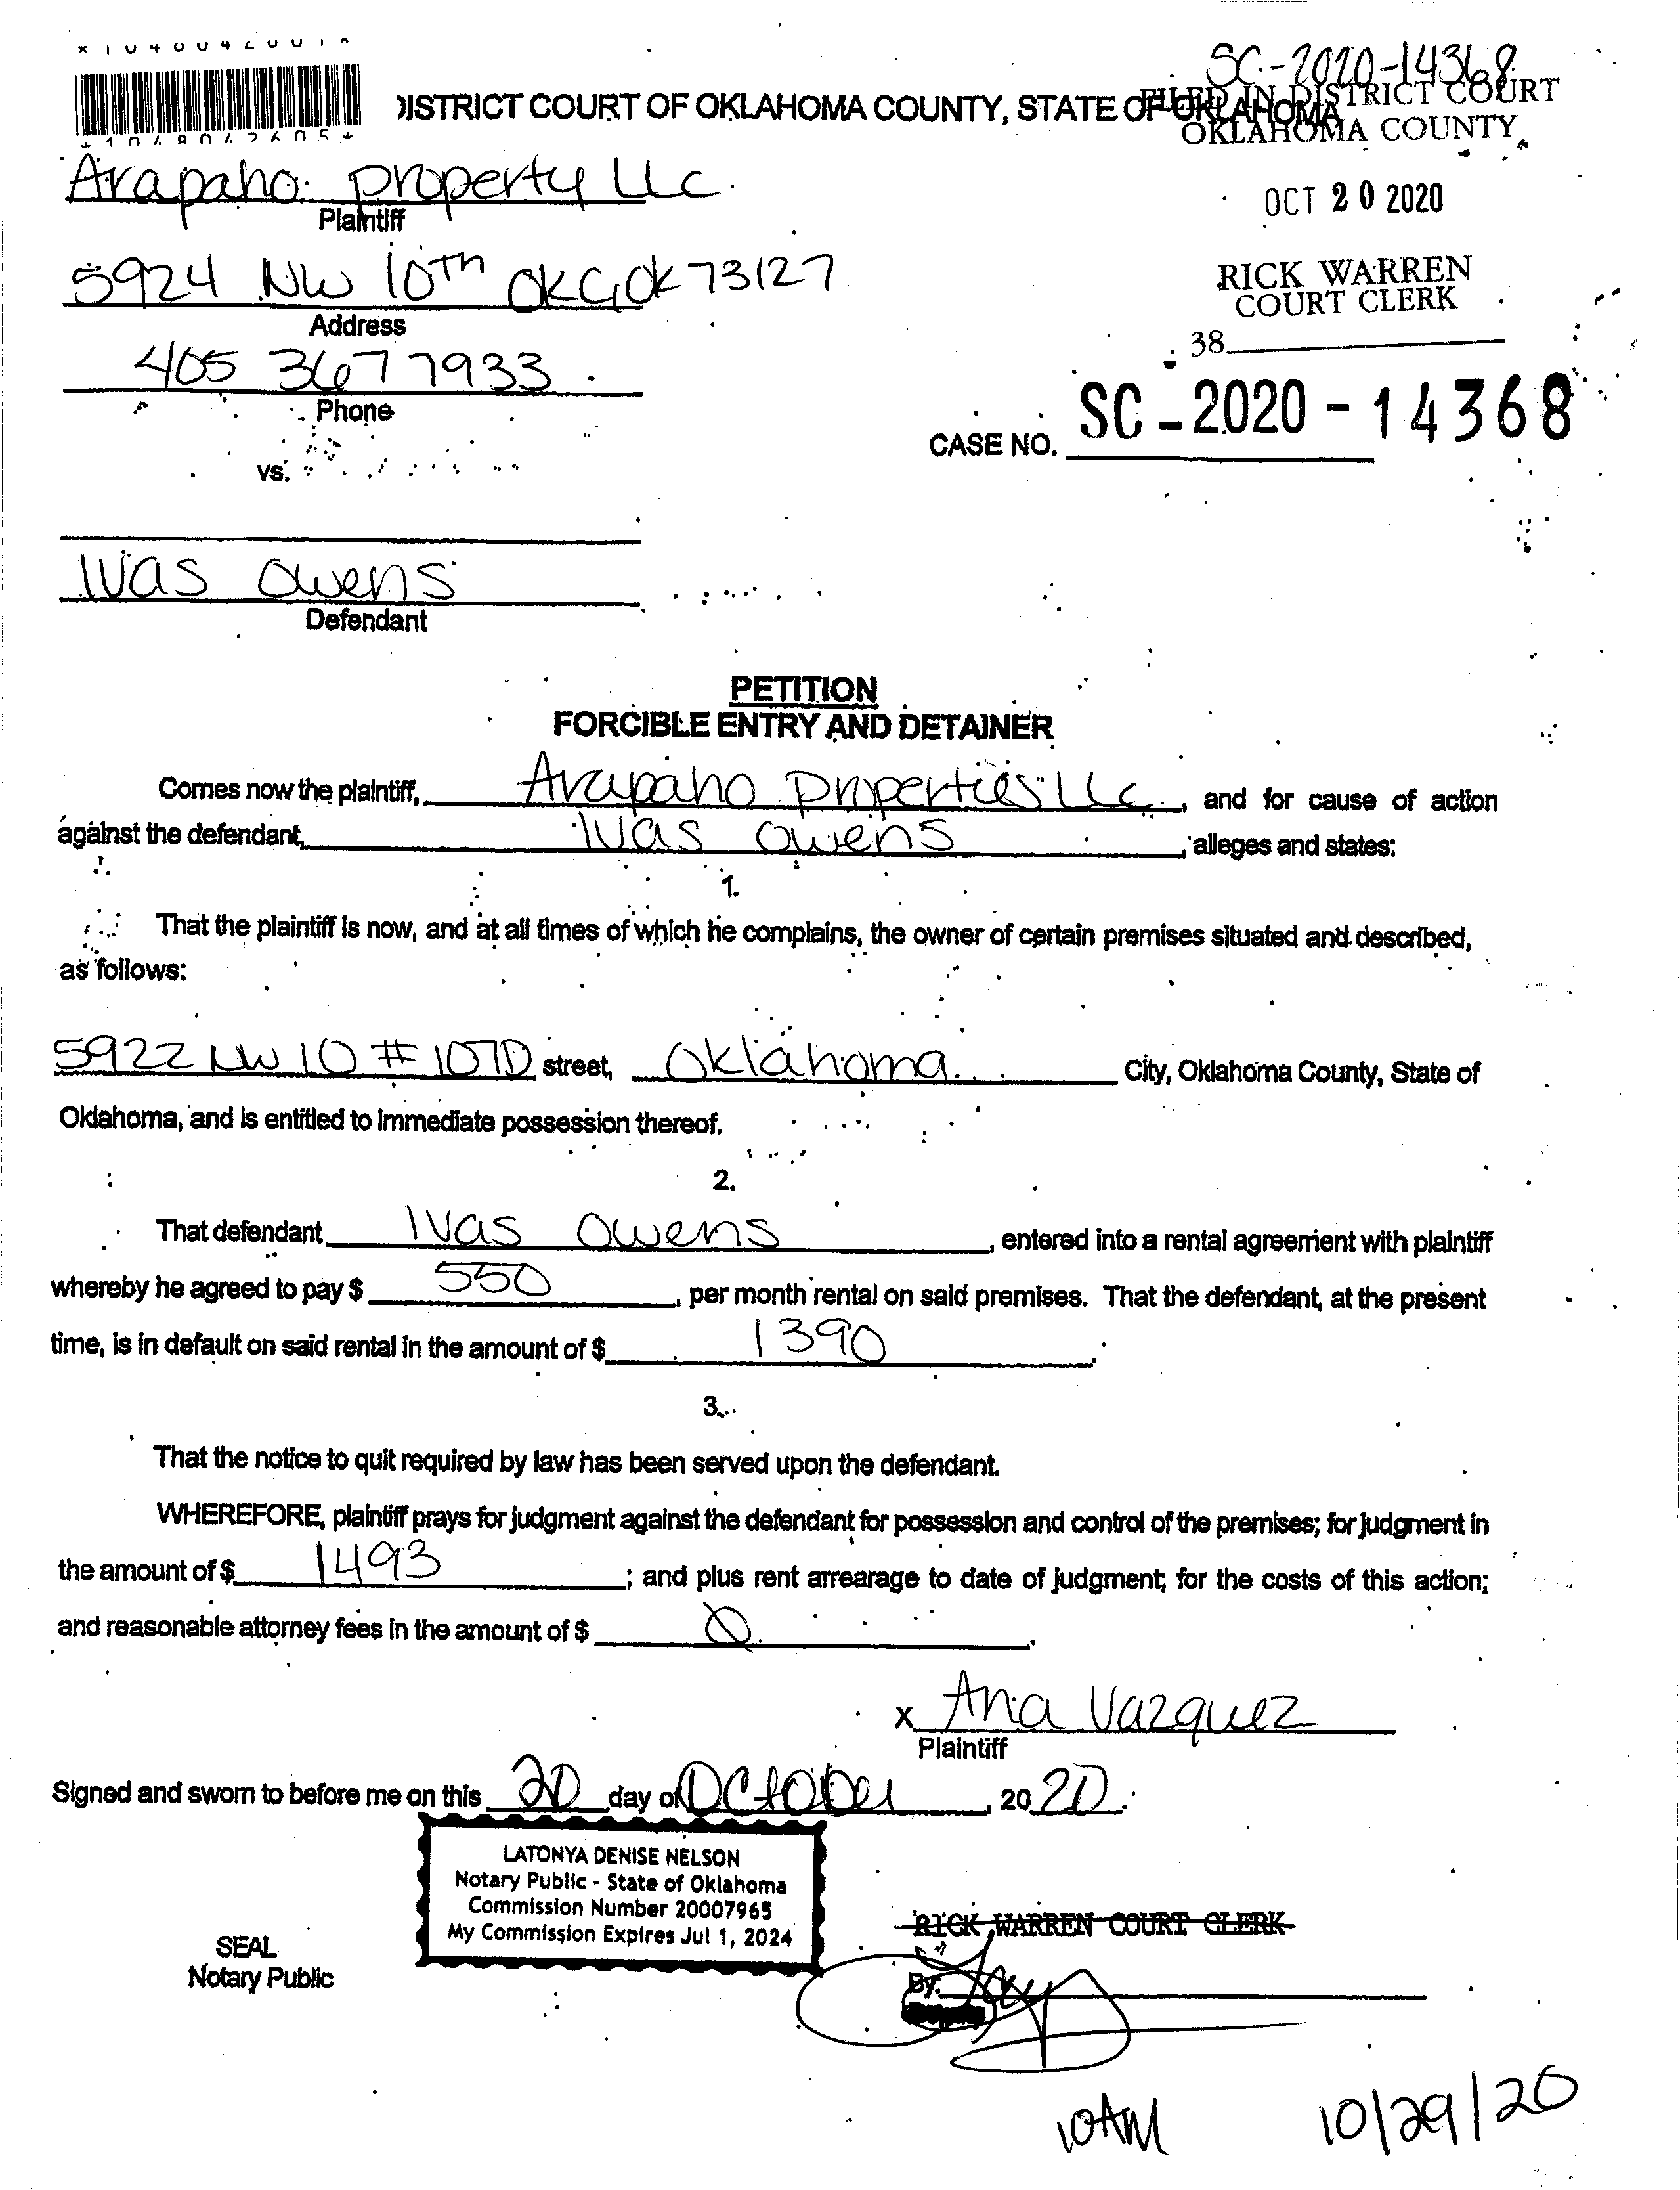 SC-2020-14368
DISTRICT COURT OF OKLAHOMA COUNTY, STATE OF OKLAHOMA
FILED IN DISTRICT COURT
OKLAHOMA COUNTY
Arapaho property LLC
Plaintiff
OCT 20 2020
5924 NW 10th OKC, OK 73127
Address
RICK WARREN
COURT CLERK
38
405 367 7933
Phone
CASE NO. SC-2020-14368
vs.
Ivas Owens
Defendant
PETITION
FORCIBLE ENTRY AND DETAINER
Comes now the plaintiff, Arapaho Properties LLC, and for cause of action
against the defendant, Ivas Owens, alleges and states:
1.
That the plaintiff is now, and at all times of which he complains, the owner of certain premises situated and described,
as follows:
5922 NW 10 # 107D street, Oklahoma City, Oklahoma County, State of
Oklahoma, and is entitled to immediate possession thereof.
2.
That defendant Ivas Owens, entered into a rental agreement with plaintiff
whereby he agreed to pay $ 550, per month rental on said premises. That the defendant, at the present
time, is in default on said rental in the amount of $ 1390.
3.
That the notice to quit required by law has been served upon the defendant.
WHEREFORE, plaintiff prays for judgment against the defendant for possession and control of the premises; for judgment in
the amount of $ 1493; and plus rent arrearage to date of judgment; for the costs of this action;
and reasonable attorney fees in the amount of $ 0.
x Ana Vazquez
Plaintiff
Signed and sworn to before me on this 20 day of October, 2020.
LATONYA DENISE NELSON
Notary Public - State of Oklahoma
Commission Number 20007965
My Commission Expires Jul 1, 2024
RICK WARREN COURT CLERK
SEAL
Notary Public
By:
Deputy
10AM 10/29/20